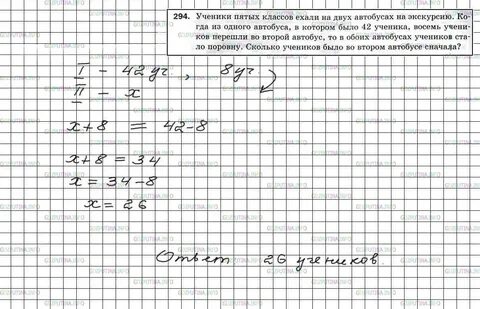 294. Ученики пятых классов ехали на двух автобусах на экскурсию. Ко-
гда из одного автобуса, в котором было 42 ученика, восемь учени-
ков перешли во второй автобус, то в обоих автобусах учеников ста-
ло поровну. Сколько учеников было во втором автобусе сначала?
I – 42 уч., 8 уч.
II – x
x+8 = 42-8
x+8 = 34
x = 34-8
x = 26
Ответ: 26 учеников.
GDZPUTINA.INFO